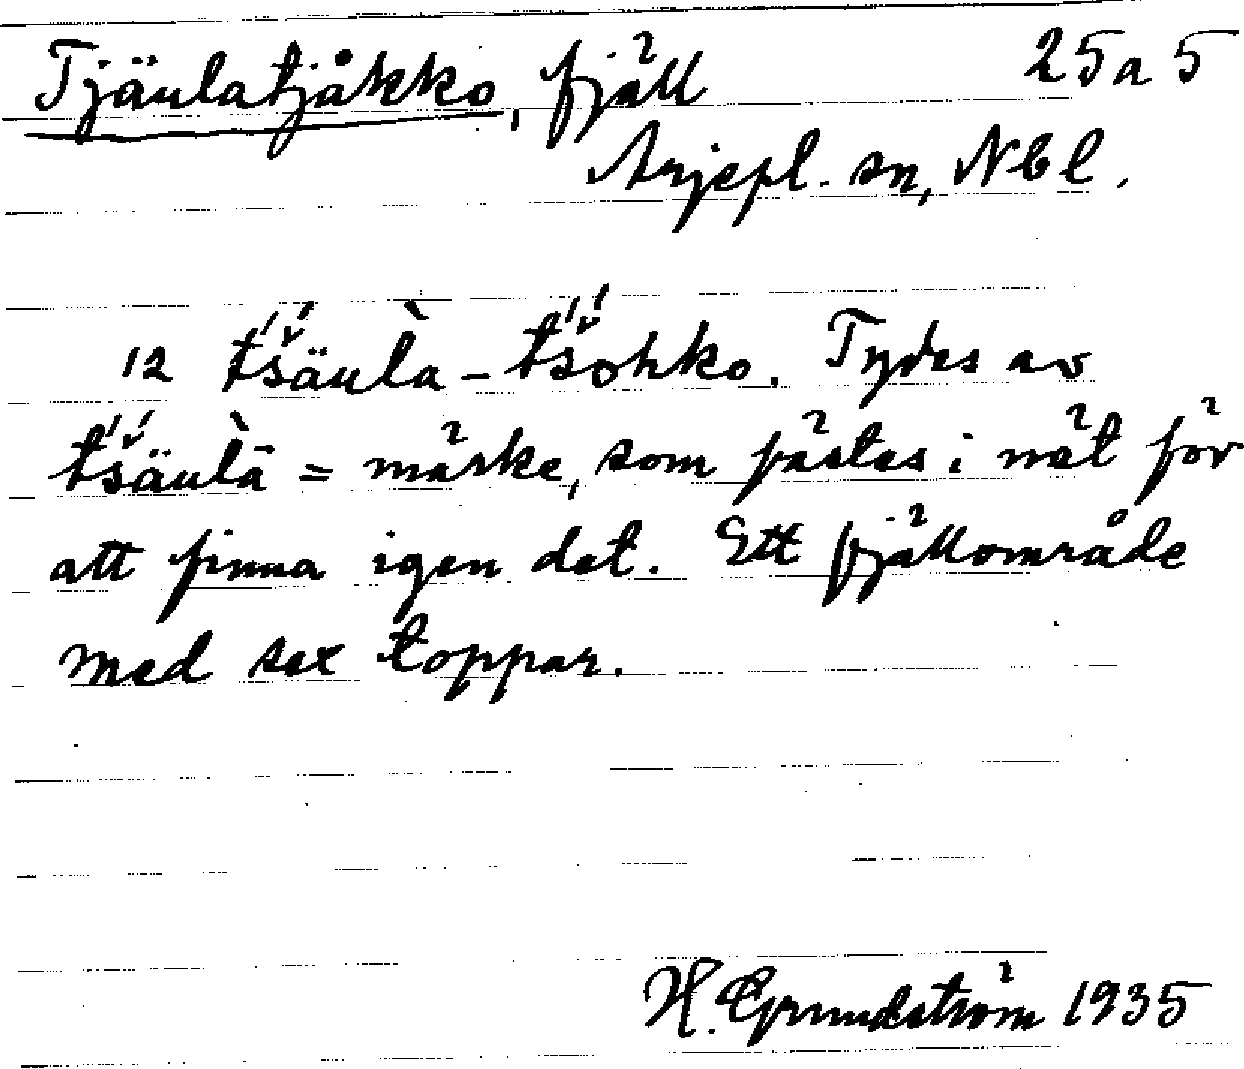 Tjäulatjåkko, fjäll 25a5
Arjepl. sn, Nbl.
12 t́š́äulὰ-t́š́ohko. Tydes av
t́š́äulὰ̄ = märke, som fästes i nät för
att finna igen det. Ett fjällområde
med sex toppar.
H. Grundström 1935